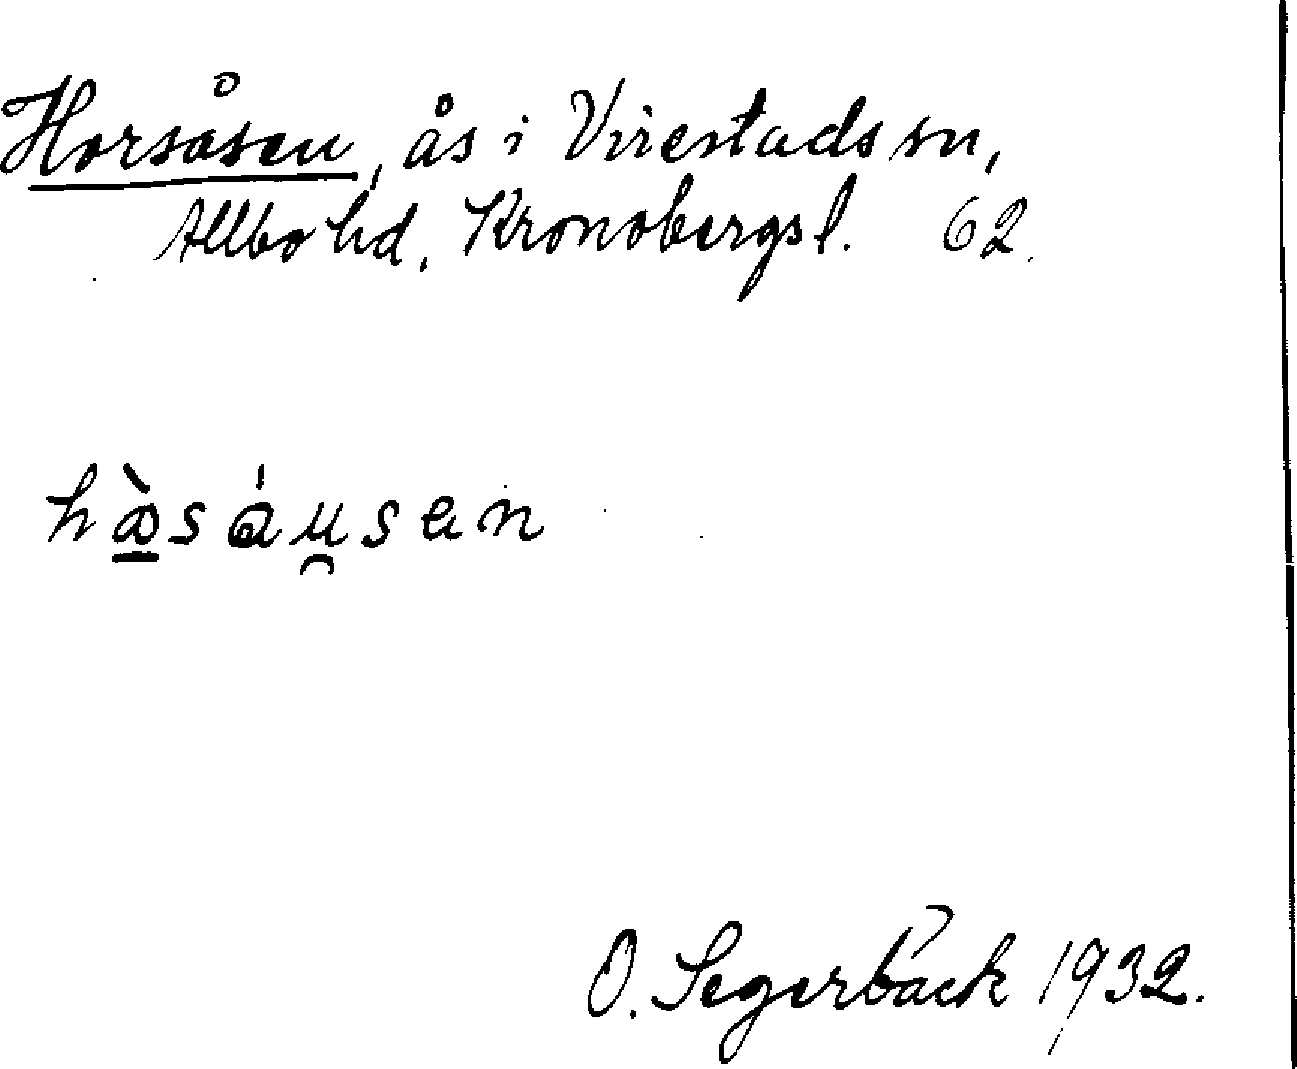 Horsåsen, ås i Virestads sn,
Allbo hd, Kronobergs l. 62.
hàsáu̯sen
O. Segerbäck 1932.